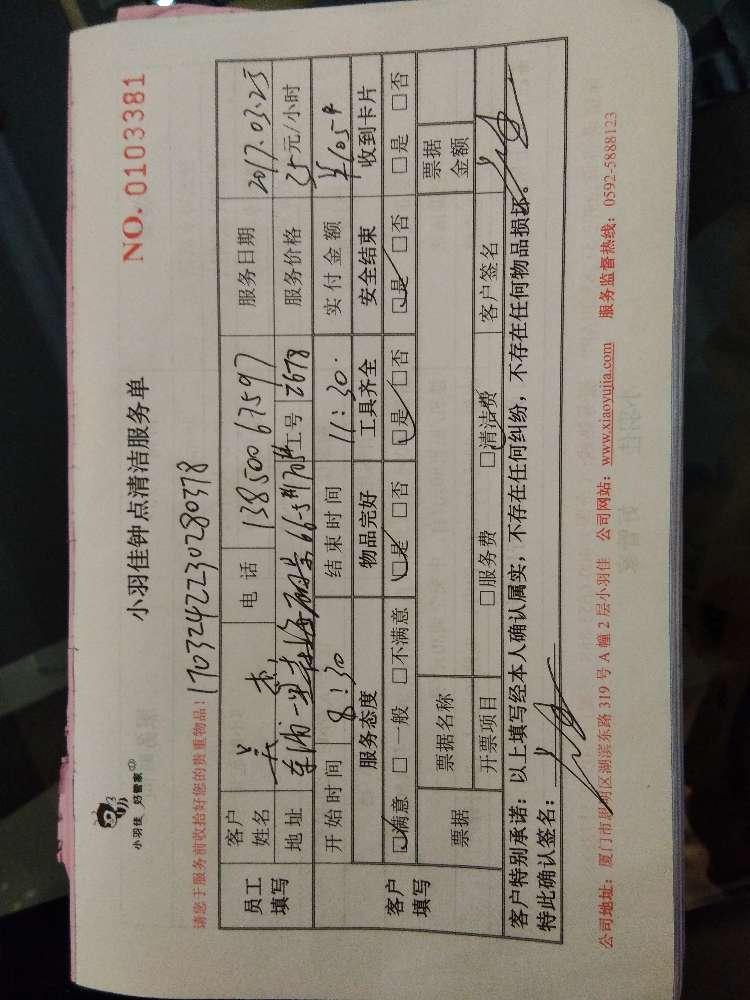 小羽佳 好管家
小羽佳钟点清洁服务单
NO. 0103381
请您于服务前收拾好您的贵重物品！
1703242230280378
员工填写 客户姓名 电话 13850067597 服务日期 2017.03.25
地址 66-5# 工号 2678 服务价格 25元/小时
开始时间 8:30 结束时间 11:30. 实付金额
客户填写 服务态度 物品完好 工具齐全 安全结束 收到卡片
☑满意 □一般 □不满意 ☑是 □否 ☑是 □否 ☑是 □否 □是 □否
票据 票据名称 票据金额
开票项目 □服务费 □清洁费 客户签名
客户特别承诺：以上填写经本人确认属实，不存在任何纠纷，不存在任何物品损坏。
特此确认签名：
公司地址：厦门市思明区湖滨东路 319 号 A 幢 2 层小羽佳 公司网站：www.xiaoyujia.com 服务监督热线：0592-5888123